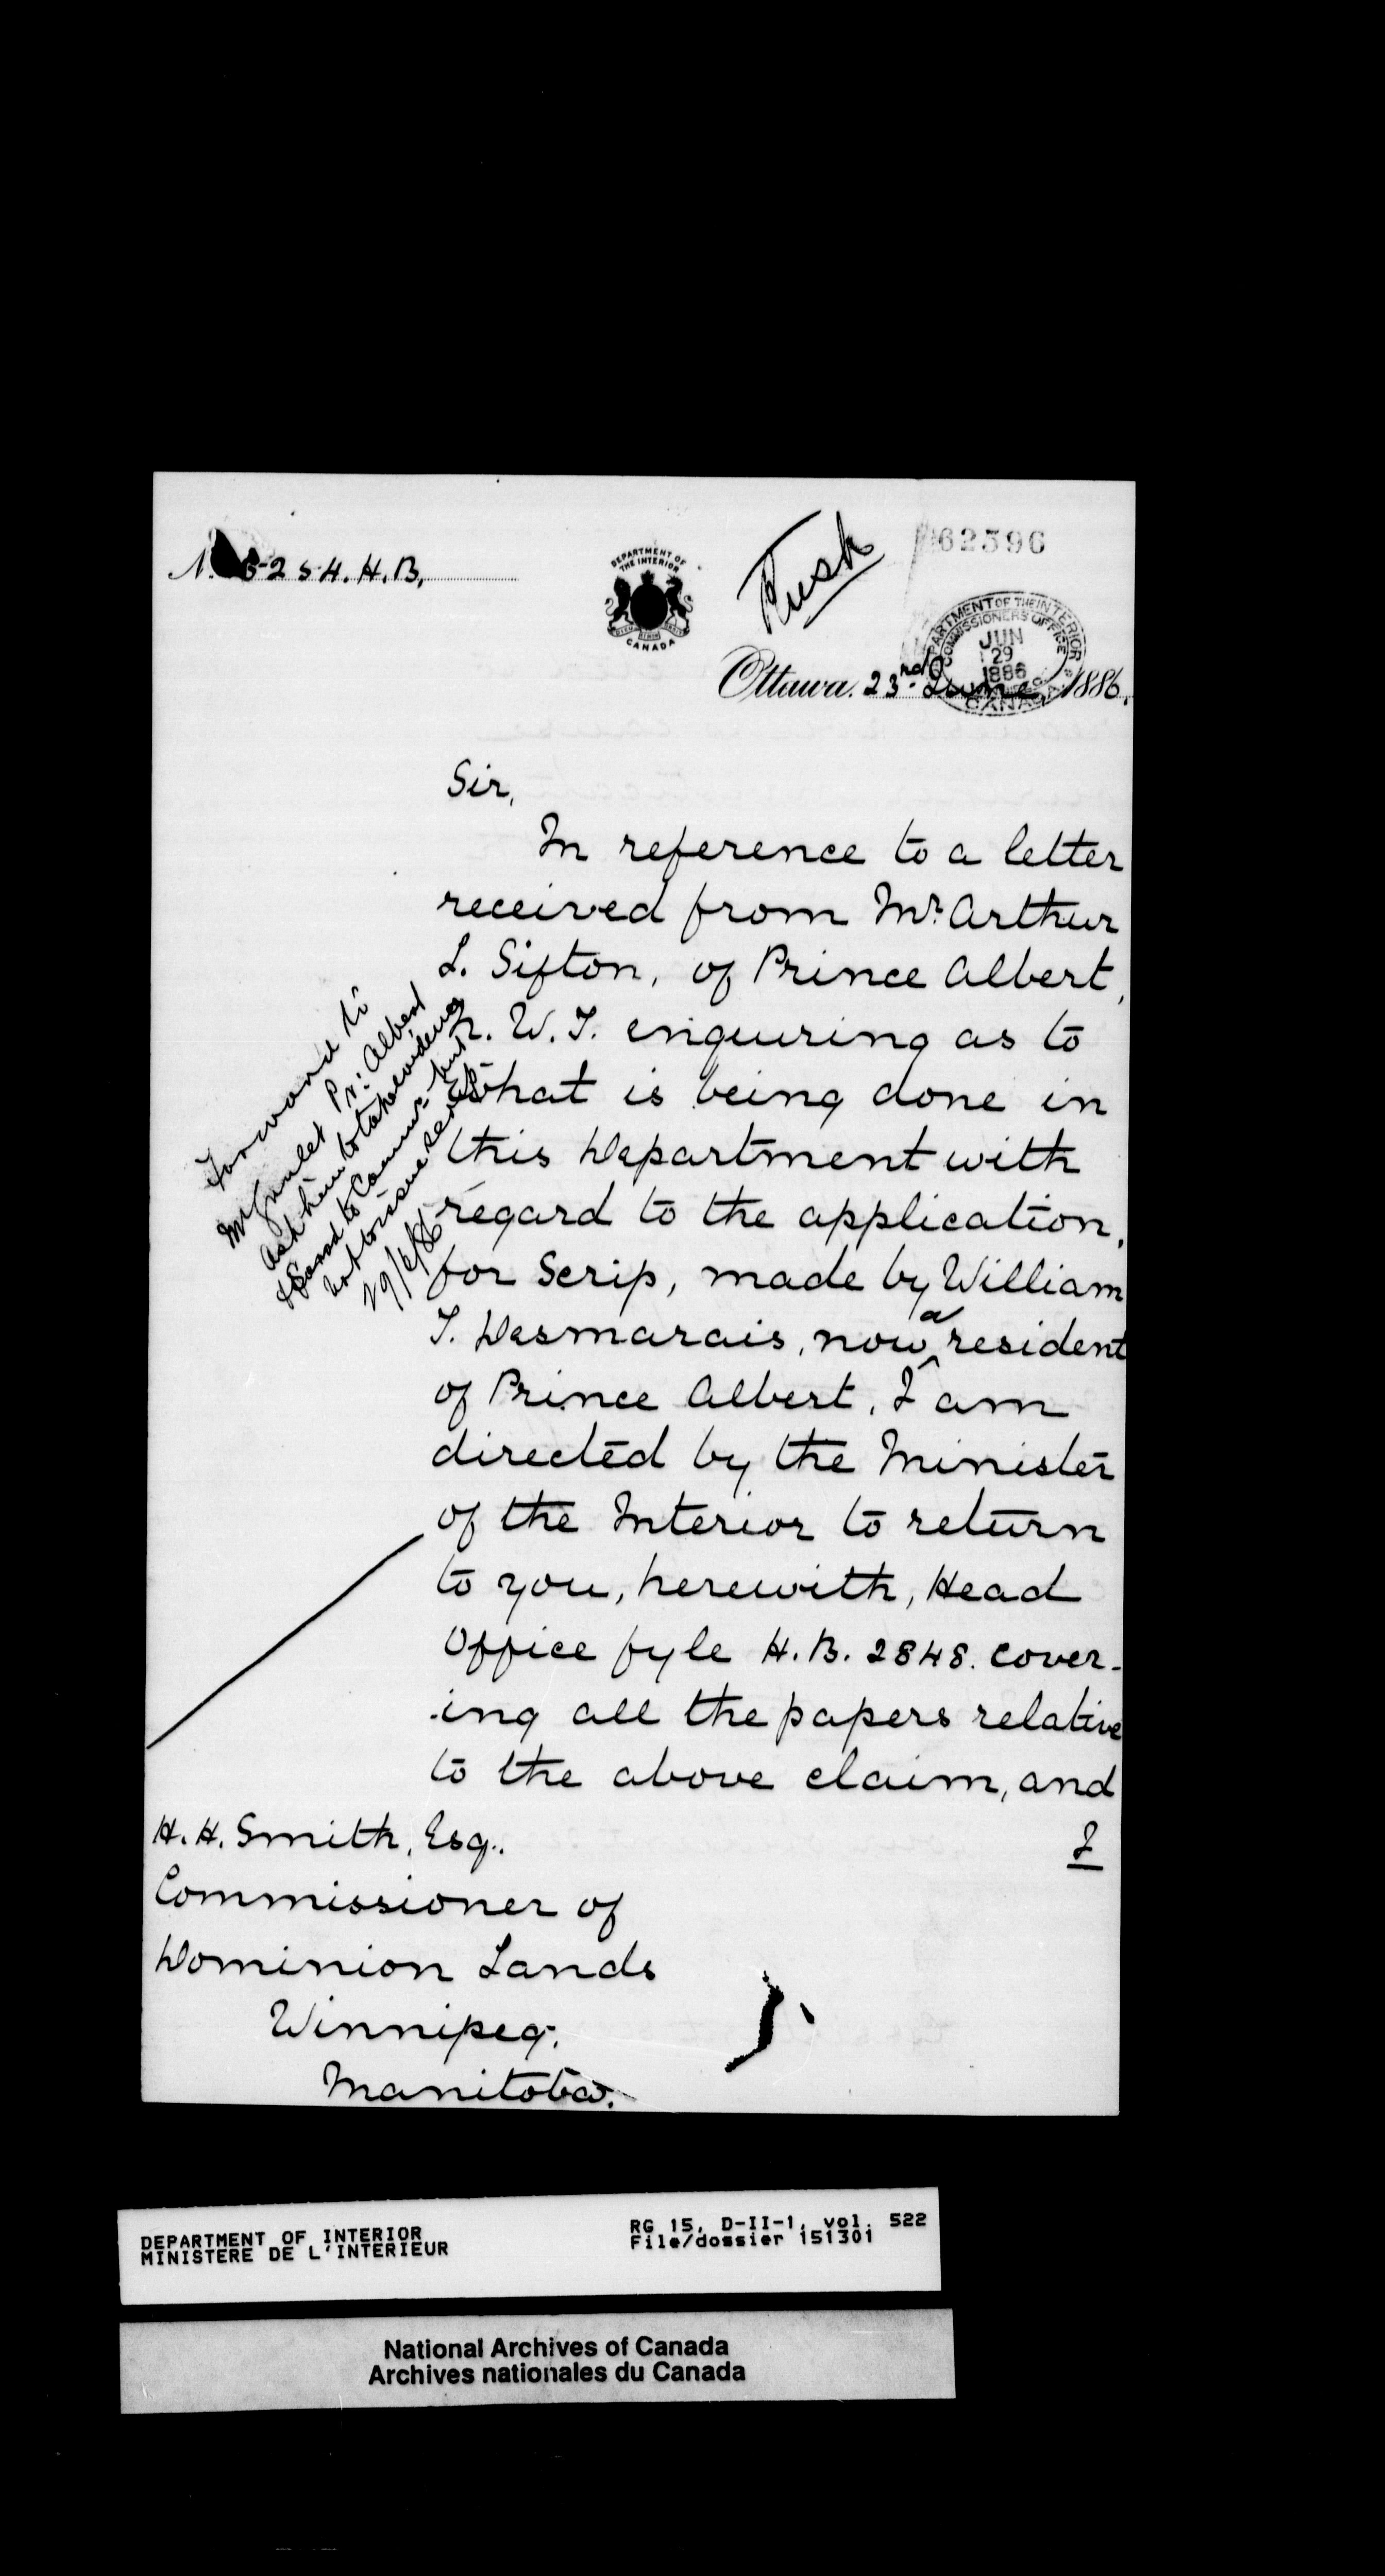 5254. H.B.
DEPARTMENT OF
THE INTERIOR
CANADA
Rush
62596
DEPARTMENT OF THE INTERIOR
COMMISSIONERS OFFICE
JUN
29
1886
CANADA
Ottawa. 23rd June, 1886.
Sir,
In reference to a letter
received from Mr. Arthur
L. Sifton, of Prince Albert,
N. W. T. enquiring as to
what is being done in
this Department with
regard to the application,
for Scrip, made by William
T. Desmarais, now a resident
of Prince Albert, I am
directed by the Minister
of the Interior to return
to you, herewith, Head
Office fyle H. B. 2848. cover-
-ing all the papers relative
to the above claim, and
I
Forward to
Mr Pr: Albert
Ask him to take evidence
& Send to Commr- but
not to issue scrip
29/6/86
H. H. Smith, Esq.
Commissioner of
Dominion Lands
Winnipeg.
Manitoba.
DEPARTMENT OF INTERIOR
MINISTERE DE L'INTERIEUR
RG 15, D-II-1, vol. 522
File/dossier 151301
National Archives of Canada
Archives nationales du Canada